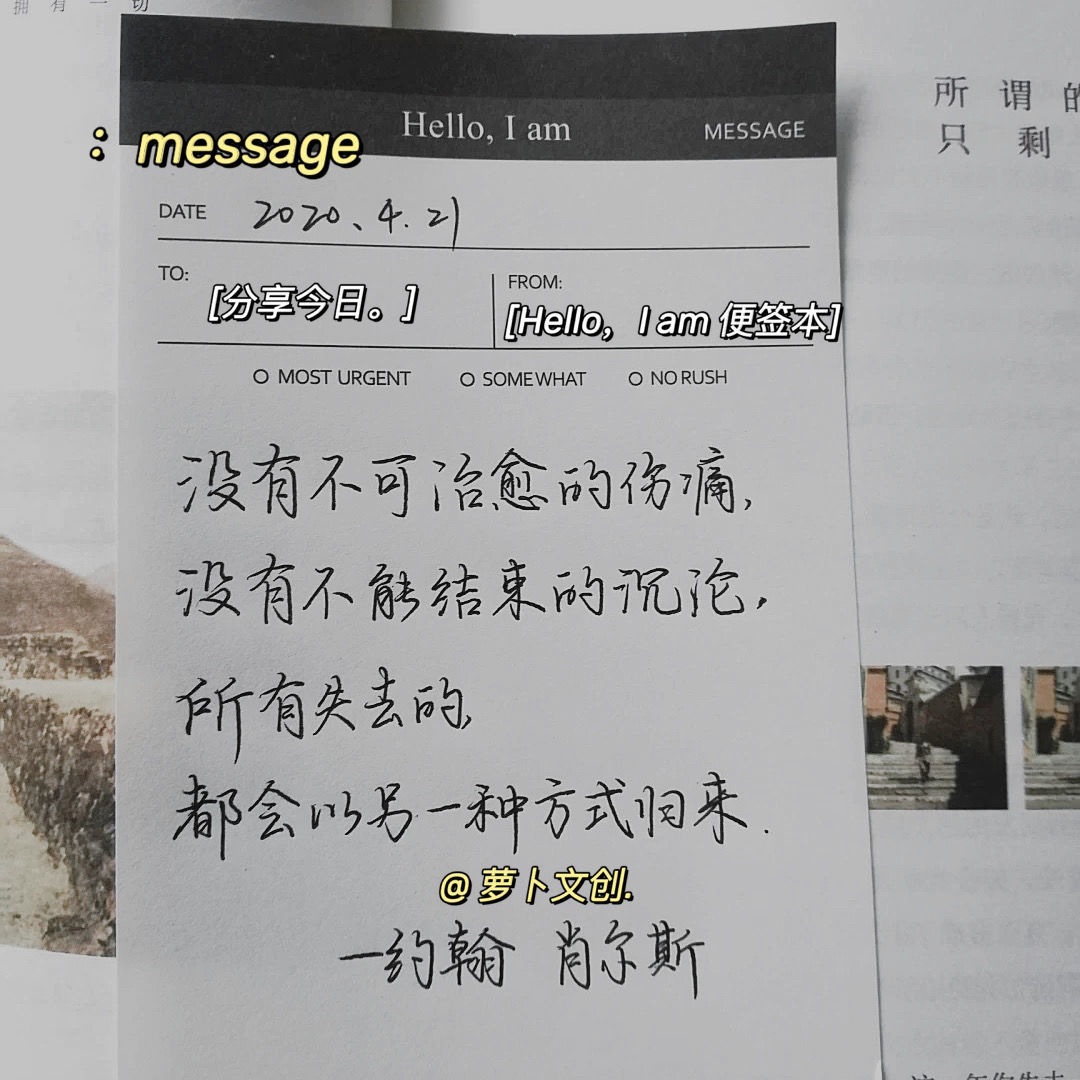 拥有一切
所谓的
只剩
Hello, I am
MESSAGE
: message
DATE 2020、4.21
TO:
[分享今日。]
FROM:
[Hello, I am 便签本]
MOST URGENT
SOMEWHAT
NO RUSH
没有不可治愈的伤痛,
没有不能结束的沉沦,
所有失去的,
都会以另一种方式归来.
@萝卜文创.
—约翰 肖尔斯